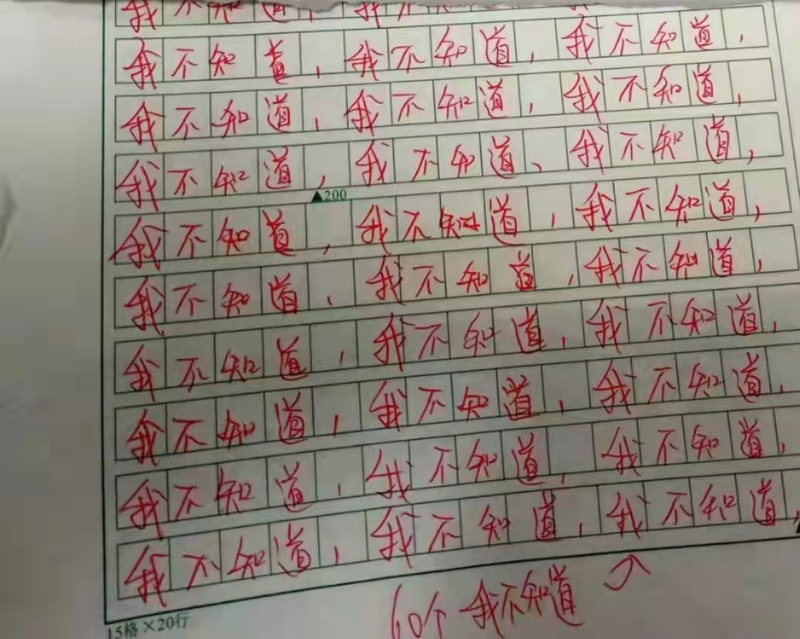 我不知道，我不知道
我不知道，我不知道，我不知道，
我不知道，我不知道，我不知道，
我不知道，我不知道、我不知道，
▲200
我不知道，我不知道，我不知道，
我不知道，我不知道，我不知道，
我不知道，我不知道，我不知道，
我不知道，我不知道，我不知道，
我不知道，我不知道，我不知道，
我不知道，我不知道，我不知道，
60个我不知道
15格×20行